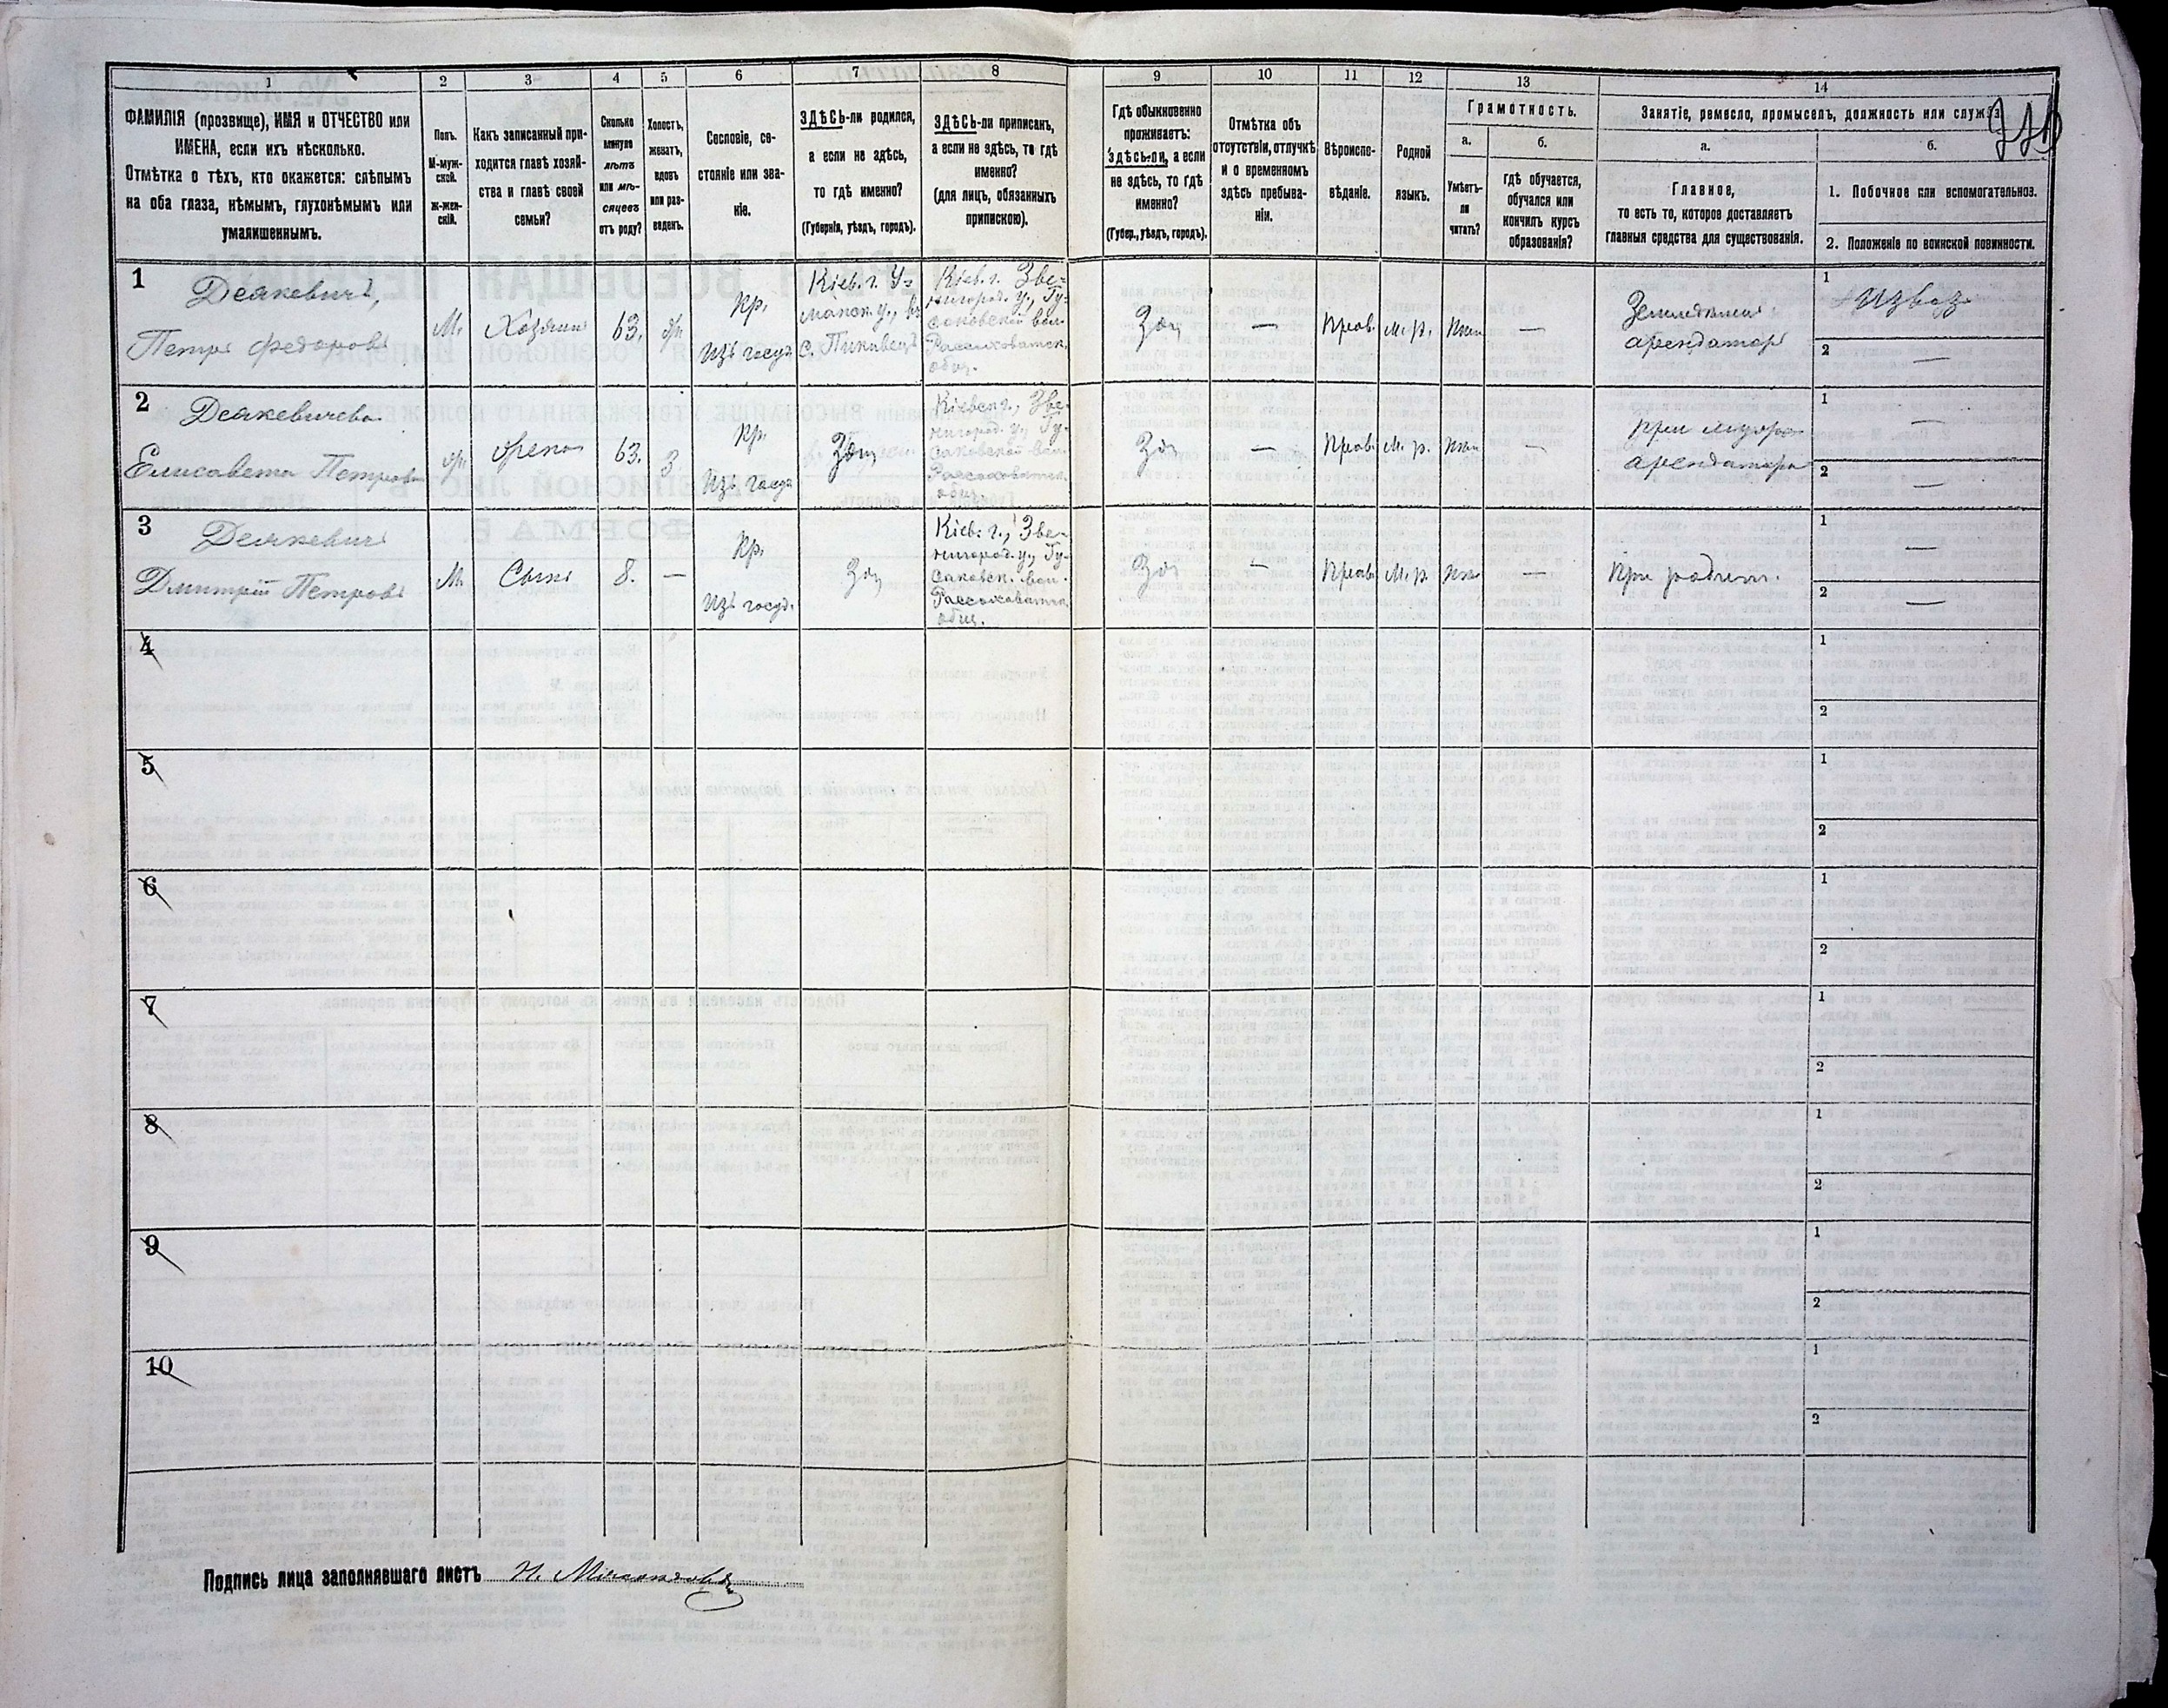 1
2
3
4
5
6
7
8
9
10
11
12
13
14
ФАМИЛІЯ (прозвище), ИМЯ и ОТЧЕСТВО или
ИМЕНА, если ихъ нѣсколько.
Отмѣтка о тѣхъ, кто окажется: слѣпымъ
на оба глаза, нѣмымъ, глухонѣмымъ или
умалишеннымъ.
Полъ.
М-муж-
ской.
Ж-жен-
скій.
Какъ записанный при-
ходится главѣ хозяй-
ства и главѣ своей
семьи?
Сколько
минуло
лѣтъ
или мѣ-
сяцевъ
отъ роду?
Холостъ,
женатъ,
вдовъ
или раз-
веденъ.
Сословіе, со-
стояніе или зва-
ніе.
ЗДѢСЬ-ли родился,
а если не здѣсь,
то гдѣ именно?
(Губернія, уѣздъ, городъ).
ЗДѢСЬ-ли приписанъ,
а если не здѣсь, то гдѣ
именно?
(для лицъ, обязанныхъ
припискою).
Гдѣ обыкновенно
проживаетъ:
здѣсь-ли, а если
не здѣсь, то гдѣ
именно?
(Губер., уѣздъ, городъ).
Отмѣтка объ
отсутствіи, отлучкѣ
и о временномъ
здѣсь пребыва-
ніи.
Вѣроиспо-
вѣданіе.
Родной
языкъ.
Грамотность.
а.
Умѣетъ-
ли
читать?
б.
гдѣ обучается,
обучался или
кончилъ курсъ
образованія?
Занятіе, ремесло, промыселъ, должность или служба.
а.
Главное,
то есть то, которое доставляетъ
главныя средства для существованія.
б.
1. Побочное или вспомогательное.
2. Положеніе по воинской повинности.
1
Деякевичъ,
Петръ Федоровъ
М. Хозяинъ 63.
Кр.
Изъ госуд
Кіев. г. У-
манск. у., въ
с. Пиковецъ
Кіев. г. Зве-
нигород. у., Гу-
саковской вол.
Рассоховатск.
общ.
Здѣ — Прав. М. р. —
Земледѣлецъ
арендаторъ
1 Извоз
2 —
2
Деякевичева
Елисавета Петрова
63. З
Кр.
Изъ госуд
Здѣ
Кіевск. г., Зве-
нигород. у., Гу-
саковской вол.
Рассоховатск.
общ.
Здѣ — Прав. М. р. —
При
арендатора
1 —
2 —
3
Деякевичъ
Дмитрій Петровъ
М. Сынъ 8. —
Кр.
Изъ госуд.
Здѣ
Кіев. г., Зве-
нигород. у., Гу-
саковск. вол.
Рассоховатск.
общ.
Здѣ — Прав. М. р. —
При родит.
1 —
2 —
4
1
2
5
1
2
6
1
2
7
1
2
8
1
2
9
1
2
10
1
2
Подпись лица заполнявшаго листъ